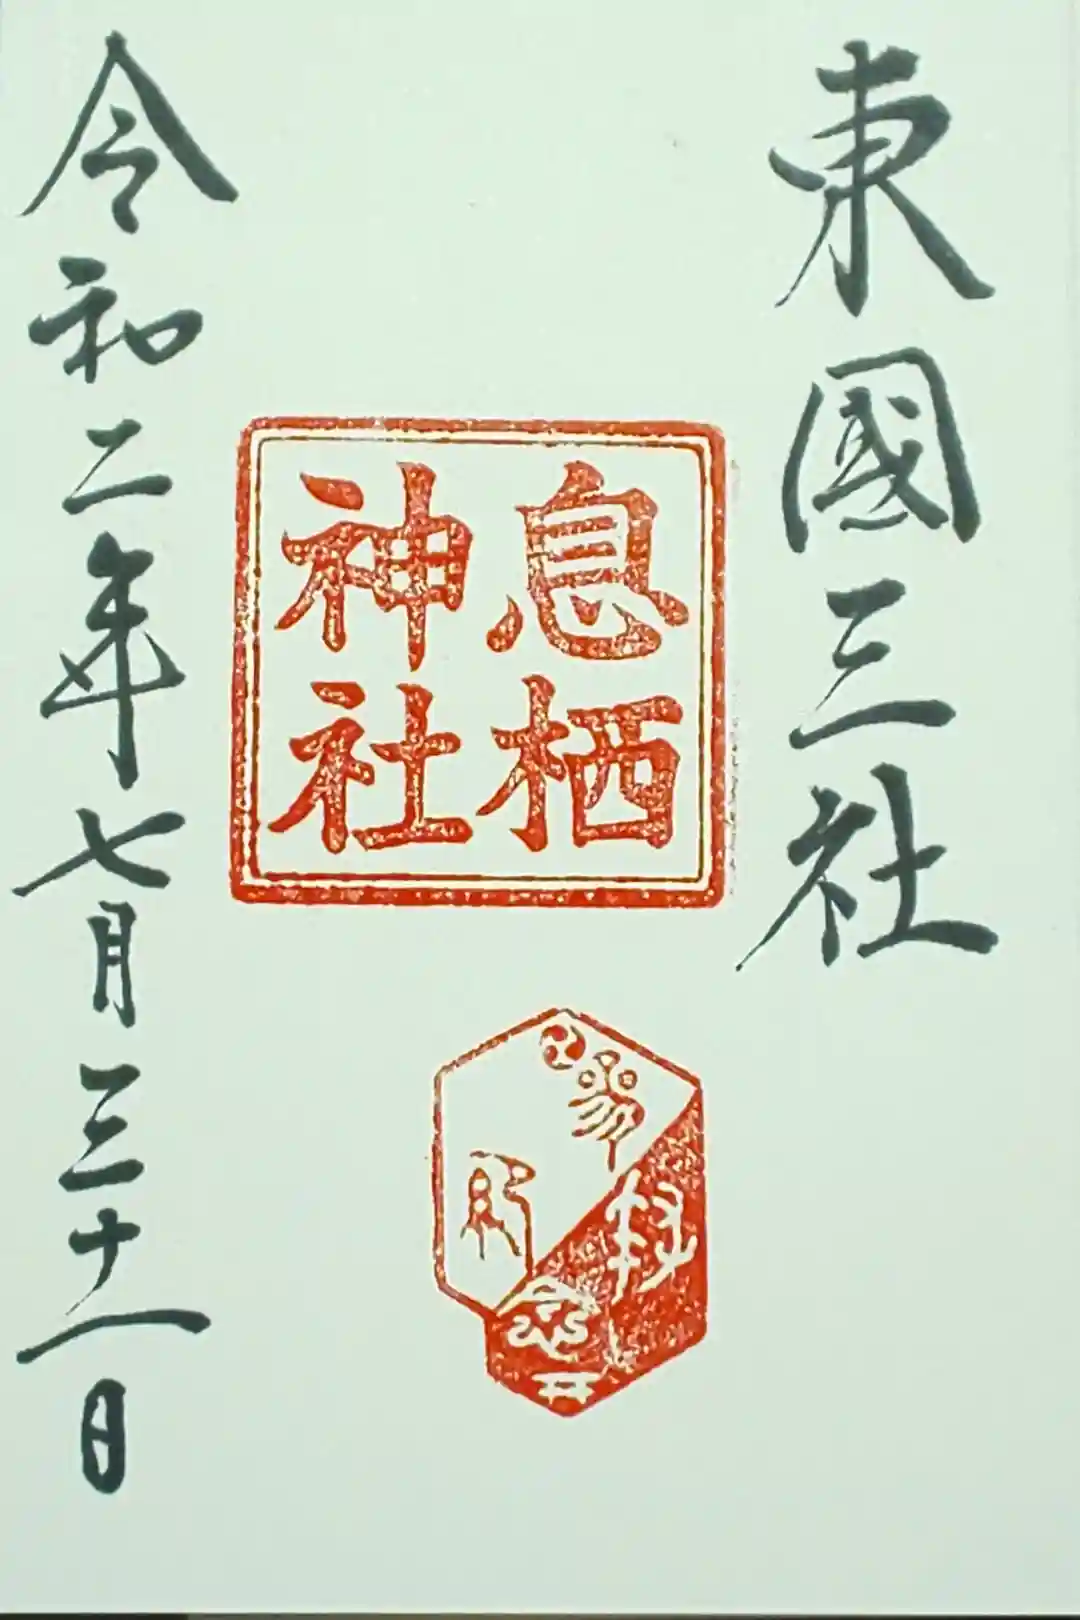 東國三社
息栖
神社
参拝
記念
令和二年七月三十一日